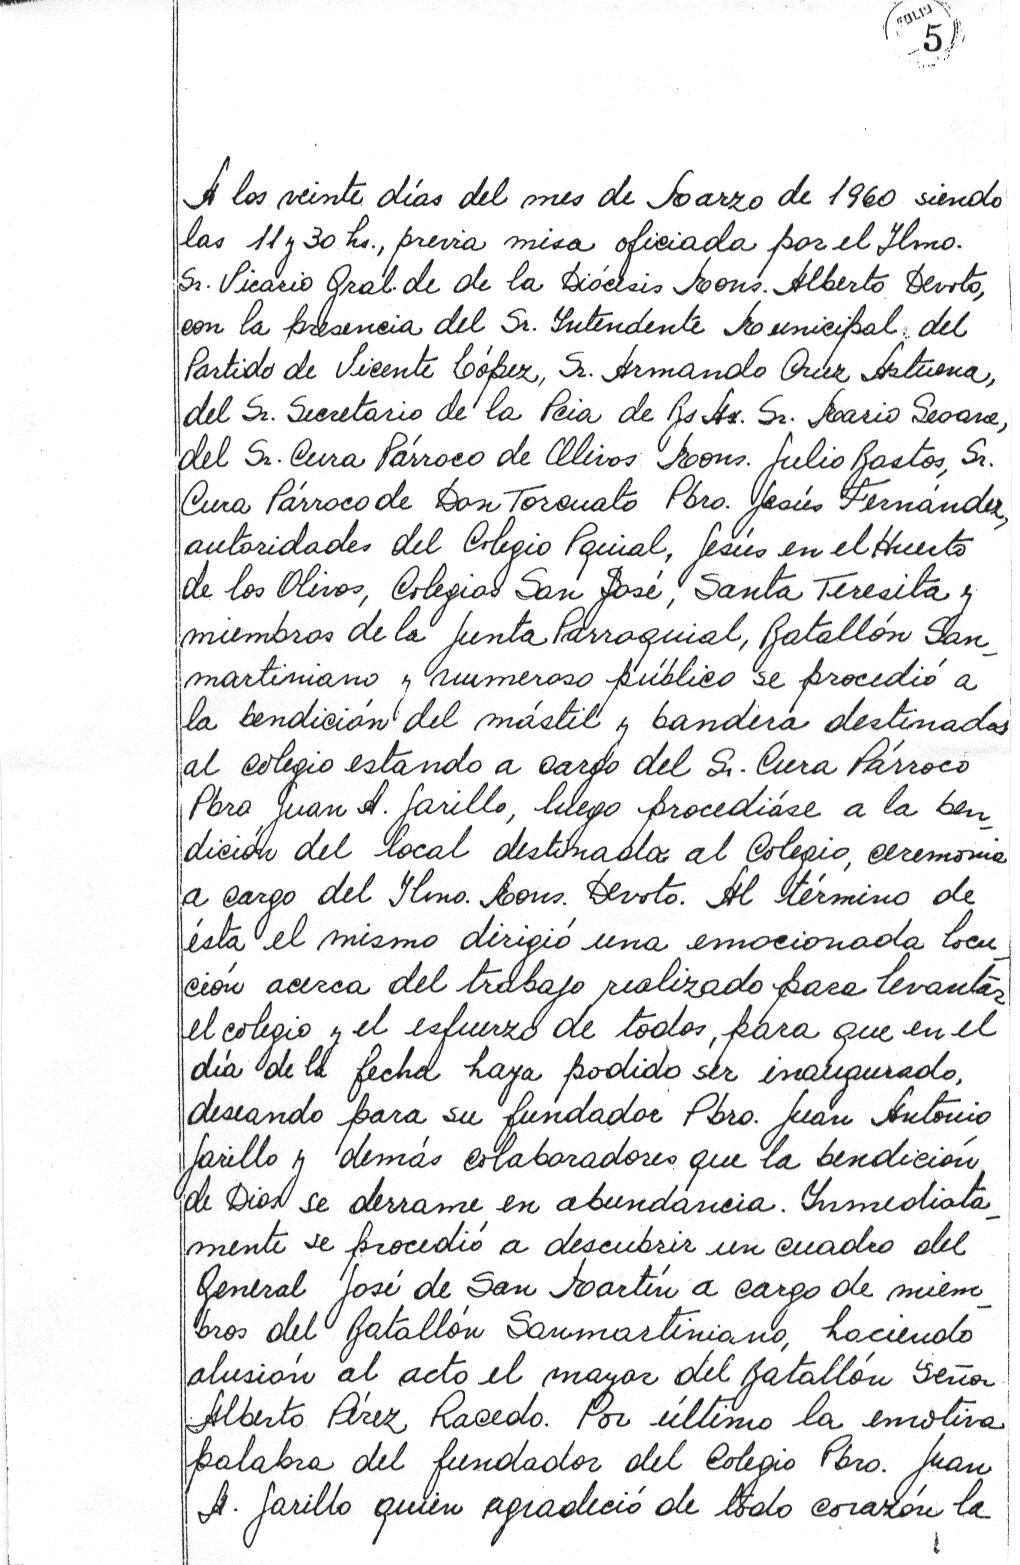 FOLIO
5
A los veinte días del mes de Marzo de 1960 siendo
las 11 y 30 hs., previa misa oficiada por el Ilmo.
Sr. Vicario Gral. de de la Diócesis Mons. Alberto Devoto,
con la presencia del Sr. Intendente Municipal del
Partido de Vicente López, Sr. Armando Cruz Astuena,
del Sr. Secretario de la Pcia de Bs As. Sr. Mario Seoane,
del Sr. Cura Párroco de Olivos Mons. Julio Bastos, Sr.
Cura Párroco de Don Torcuato Pbro. Jesús Fernández,
autoridades del Colegio Pquial, Jesús en el Huerto
de los Olivos, Colegios San José, Santa Teresita y
miembros de la Junta Parroquial, Batallón San_
martiniano y numeroso público se procedió a
la bendición del mástil y bandera destinados
al colegio estando a cargo del Sr. Cura Párroco
Pbro Juan A. Jarillo, luego procedióse a la ben_
dición del local destinado al Colegio, ceremonia
a cargo del Ilmo. Mons. Devoto. Al término de
ésta el mismo dirigió una emocionada locu_
ción acerca del trabajo realizado para levantar
el colegio y el esfuerzo de todos, para que en el
día de la fecha haya podido ser inaugurado,
deseando para su fundador Pbro. Juan Antonio
Jarillo y demás colaboradores que la bendición
de Dios se derrame en abundancia. Inmediata_
mente se procedió a descubrir un cuadro del
General José de San Martín a cargo de miem_
bros del Batallón Sanmartiniano, haciendo
alusión al acto el mayor del Batallón Señor
Alberto Pérez Racedo. Por último la emotiva
palabra del fundador del Colegio Pbro. Juan
A. Jarillo quien agradeció de todo corazón la